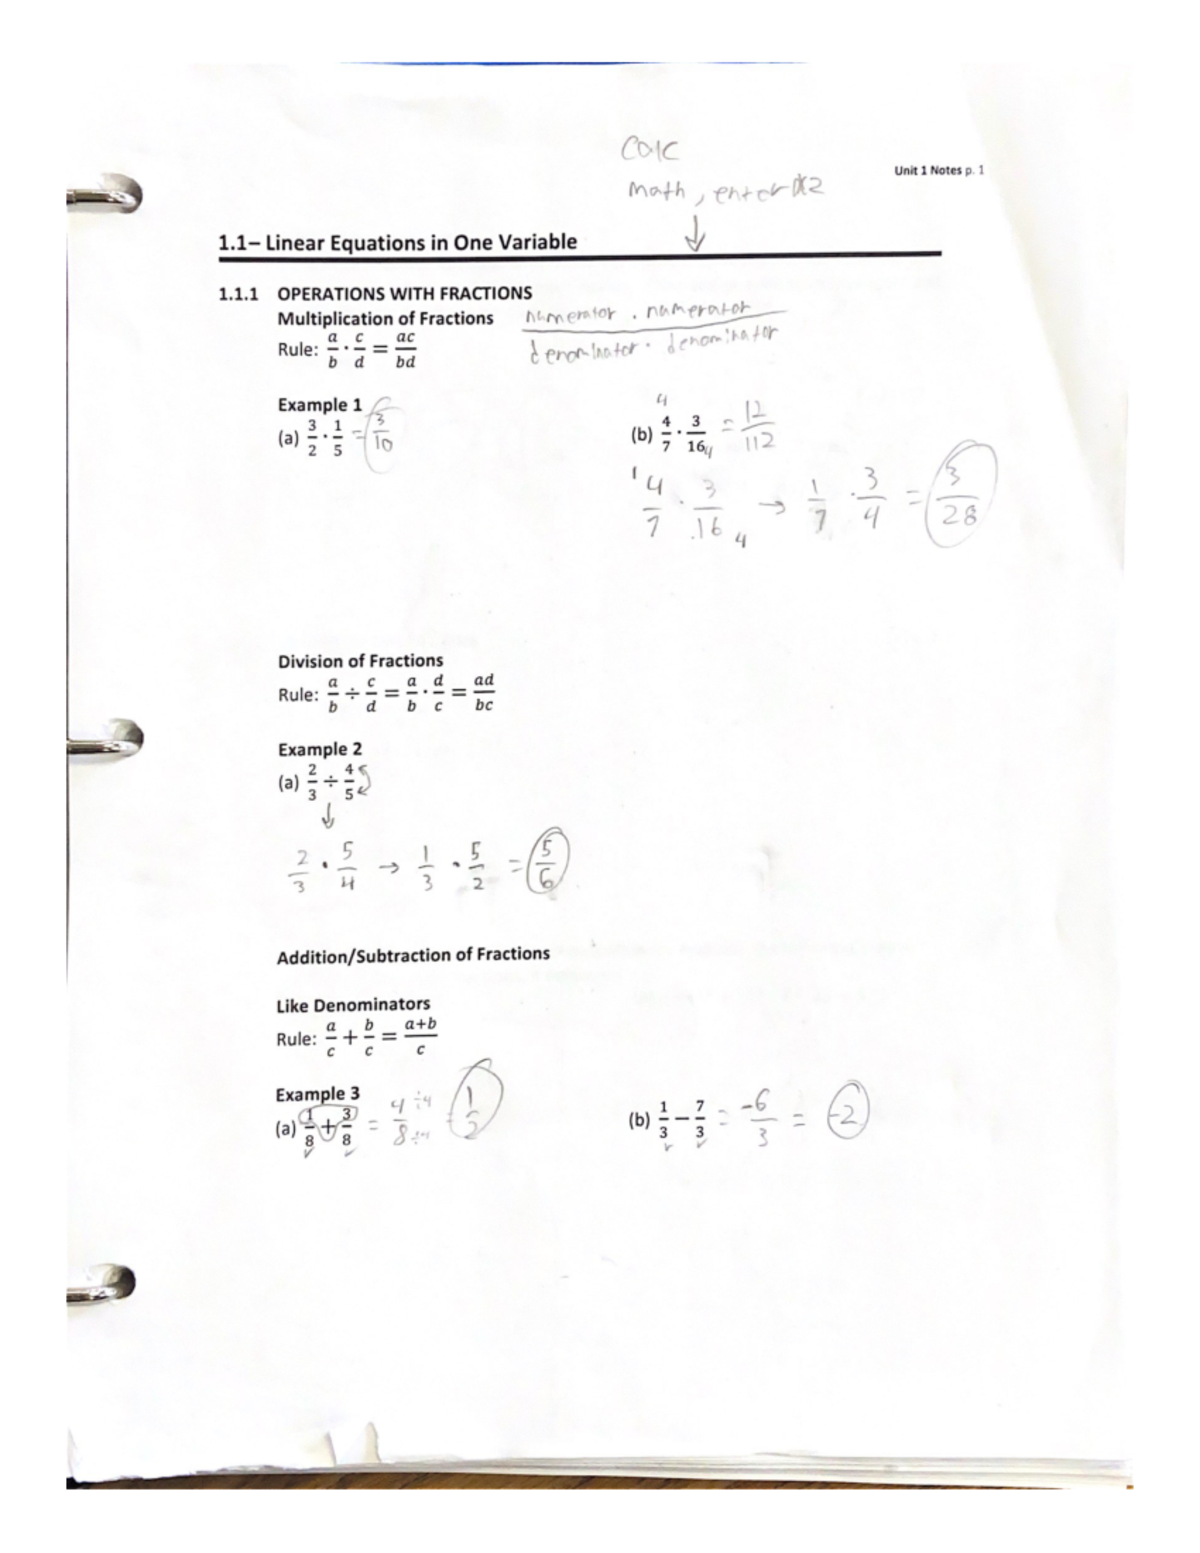 Calc
Unit 1 Notes p. 1
math, enter x2
↓
1.1– Linear Equations in One Variable
1.1.1 OPERATIONS WITH FRACTIONS
Multiplication of Fractions
numerator · numerator / denominator · denominator
Rule: a/b · c/d = ac/bd
Example 1
(a) 3/2 · 1/5 = 3/10
4
(b) 4/7 · 3/16 4 = 12/112
1 4/7 · 3/16 4 → 1/7 · 3/4 = 3/28
Division of Fractions
Rule: a/b ÷ c/d = a/b · d/c = ad/bc
Example 2
(a) 2/3 ÷ 4/5
↓
2/3 · 5/4 → 1/3 · 5/2 = 5/6
Addition/Subtraction of Fractions
Like Denominators
Rule: a/c + b/c = a+b/c
Example 3
(a) 1/8 + 3/8 = 4/8 ÷4/÷4 = 1/2
(b) 1/3 − 7/3 = -6/3 = -2